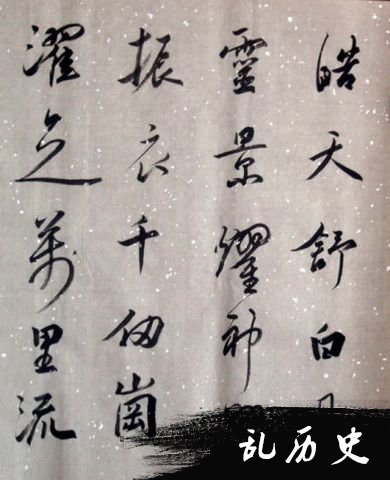 皓天舒白
靈景燿神
振衣千仞崗
濯足萬里流
乱历史